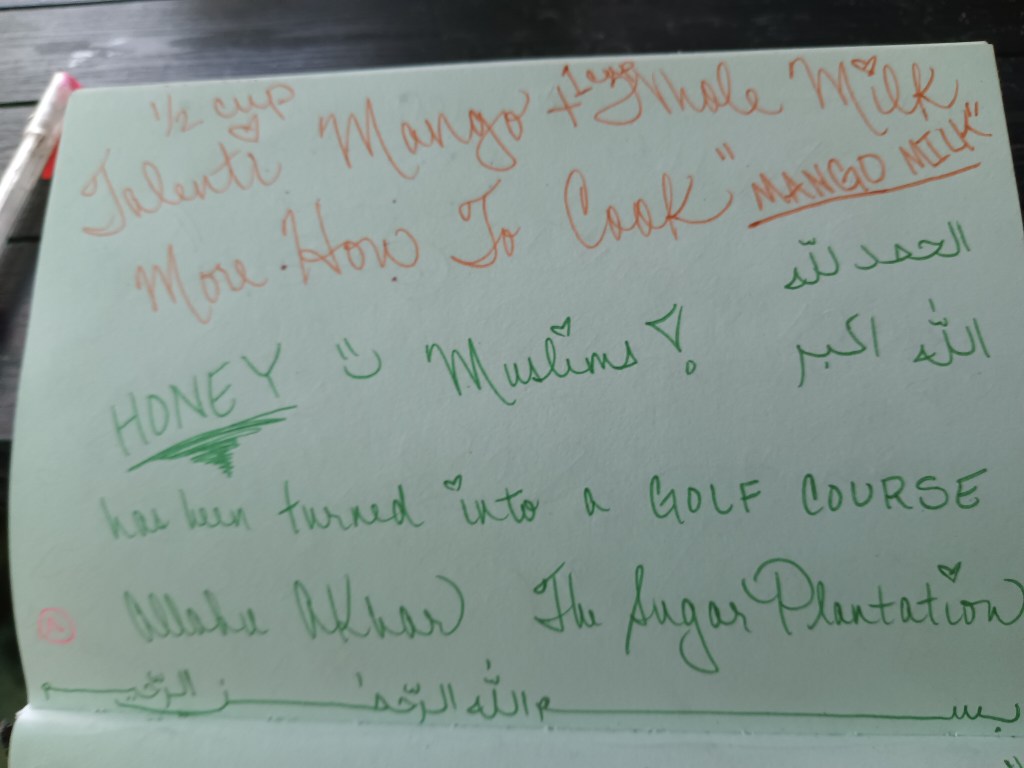 1/2 cup
Talenti Mango + 1 cup Whole Milk
More How To Cook "MANGO MILK"
الحمد لله
HONEY Muslims؟ الله اكبر
has been turned into a GOLF COURSE
Allahu AKbar The Sugar Plantation
بسم الله الرحمن الرحيم